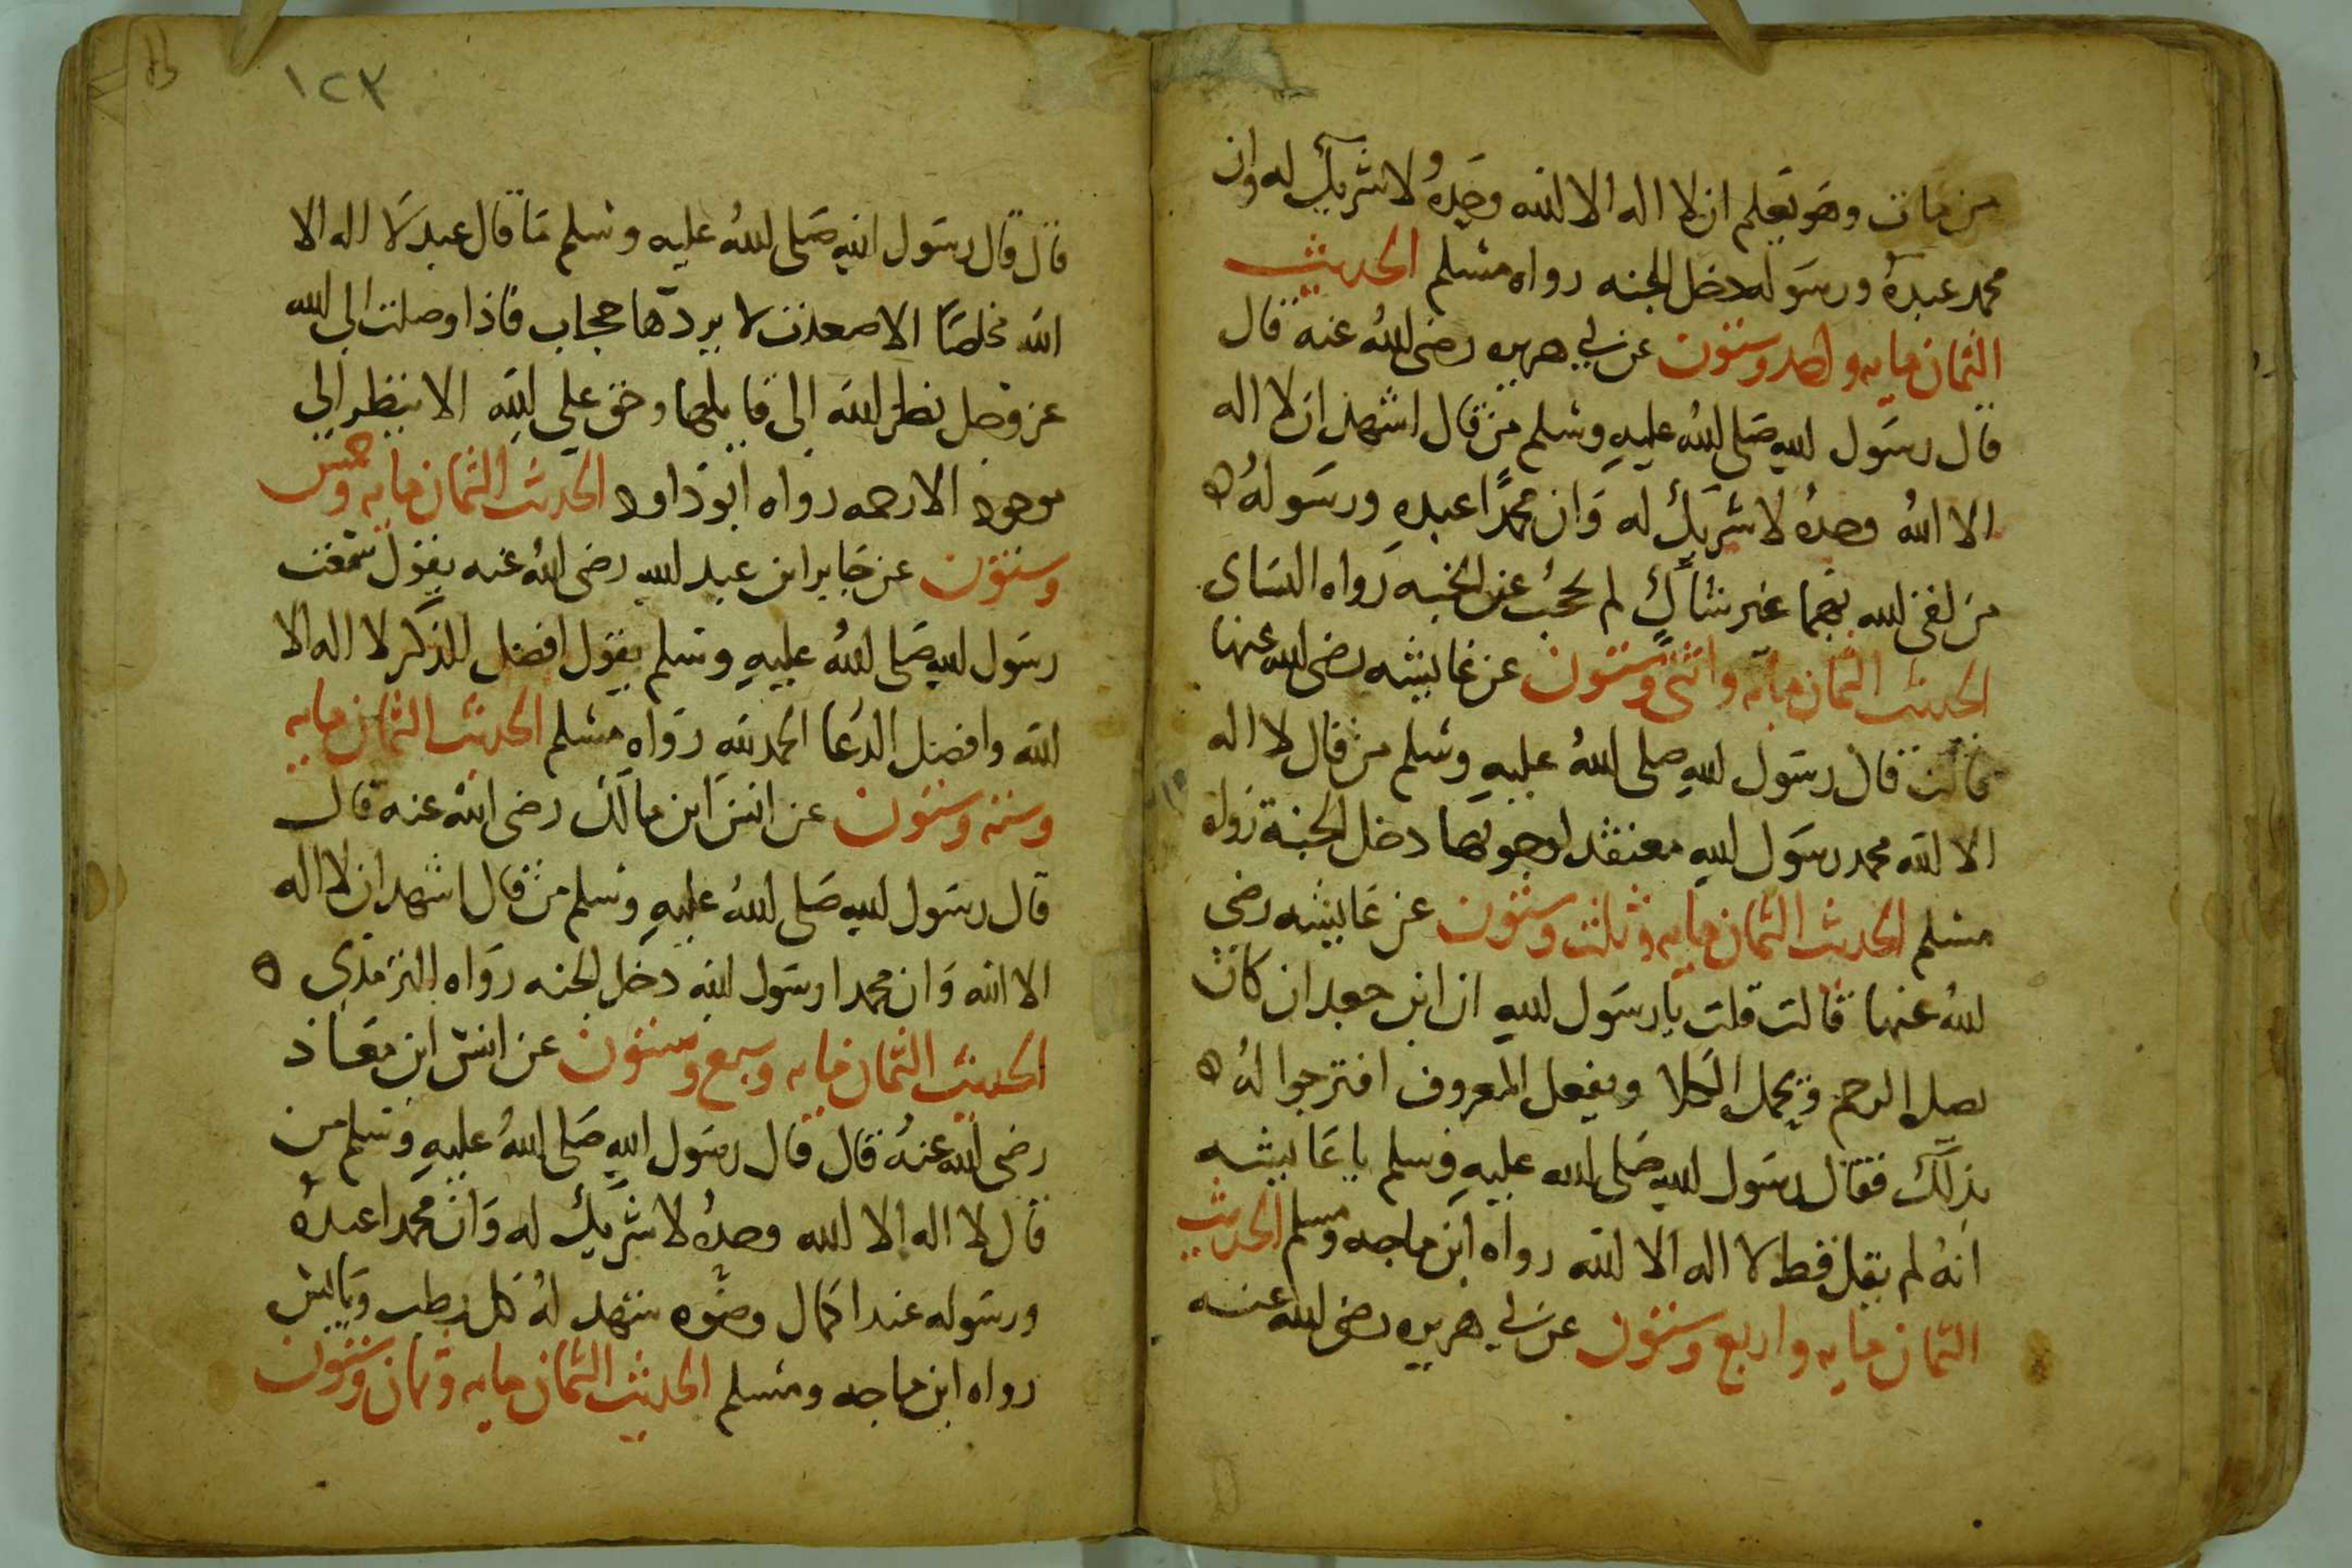 من مات وهو يعلم ان لا اله الا الله وحده لا شريك له وان
محمد عبده ورسوله دخل الجنه رواه مسلم الحديث
الثمان مايه واحد وستون عن ابي هريره رضى الله عنه قال
قال رسول الله صلى الله عليه وسلم من قال اشهد ان لا اله
الا الله وحده لا شريك له وان محمدًا عبده ورسوله ه
من لقى الله بهما غير شاكٍ لم يحجب عن الجنه رواه النساى
الحديث الثمان مايه واثنى وستون عن عايشه رضى الله عنها
قالت قال رسول الله صلى الله عليه وسلم من قال لا اله
الا الله محمد رسول الله معتقد لوجوبها دخل الجنة رواه
مسلم الحديث الثمان مايه وثلث وستون عن عايشه رضى
الله عنها قالت قلت يا رسول الله ان ابن جعدان كان
يصل الرحم ويحمل الكلا ويفعل المعروف افترجوا له ه
بذلك فقال رسول الله صلى الله عليه وسلم يا عايشه
انه لم يقل قط لا اله الا الله رواه ابن ماجه ومسلم الحديث
الثمان مايه واربع وستون عن ابي هريره رضى الله عنه
١٢٣
قال قال رسول الله صلى الله عليه وسلم ما قال عبد لا اله الا
الله مخلصًا الا صعدت لا يردها حجاب فاذا وصلت الى الله
عز وجل نظر الله الى قايلها وحق على الله الا ينظر الى
موحد الا رحمه رواه ابو داود الحديث الثمان مايه وخمس
وستون عن جابر ابن عبد الله رضى الله عنه يقول سمعت
رسول الله صلى الله عليه وسلم يقول افضل الذكر لا اله الا
الله وافضل الدعا الحمد لله رواه مسلم الحديث الثمان مايه
وسته وستون عن انس ابن مالك رضى الله عنه قال
قال رسول الله صلى الله عليه وسلم من قال اشهد ان لا اله
الا الله وان محمدا رسول الله دخل الجنه رواه الترمذي ه
الحديث الثمان مايه وسبع وستون عن انس ابن معاذ
رضى الله عنه قال قال رسول الله صلى الله عليه وسلم من
قال لا اله الا الله وحده لا شريك له وان محمدا عبده
ورسوله عند اكمال وضوه شهد له كل رطب ويابس
رواه ابن ماجه ومسلم الحديث الثمان مايه وثمان وستون